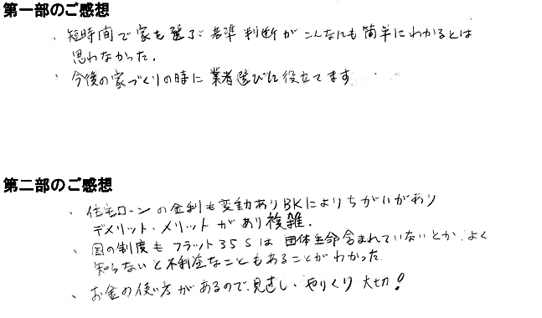 第一部のご感想
・短時間で家を選ぶ基準 判断がこんなにも簡単にわかるとは
思わなかった.
・今後の家づくりの時に業者選びに役立てます
第二部のご感想
・住宅ローンの金利も変動あり BKによりちがいがあり
デメリット・メリットがあり複雑.
・国の制度もフラット35Sは団体生命含まれていないとか、よく
知らないと不利益なこともあることがわかった
・お金の使い方があるので、見直し、やりくり大切!